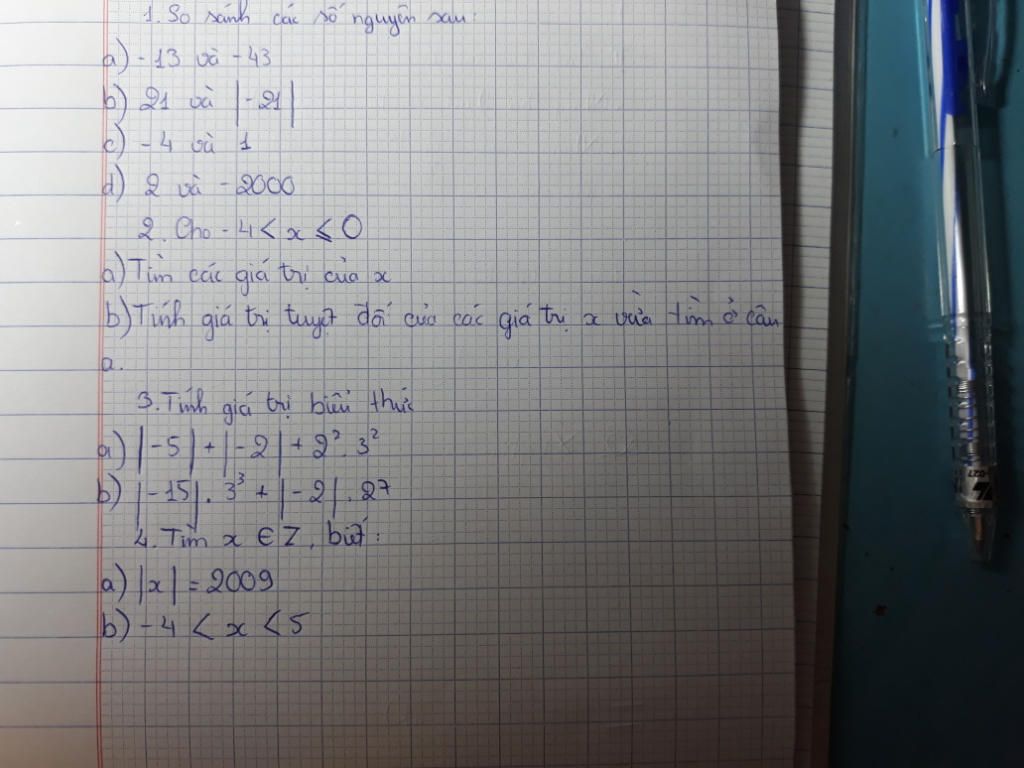 1. So sánh các số nguyên sau:
a) -13 và -43
b) 21 và |-21|
c) -4 và 1
d) 2 và -2000
2. Cho -4 < x ⩽ 0
a) Tìm các giá trị của x
b) Tính giá trị tuyệt đối của các giá trị x vừa tìm ở câu
a.
3. Tính giá trị biểu thức
a) |-5| + |-2| + 2². 3²
b) |-15|. 3³ + |-2|. 27
4. Tìm x ∈ Z, biết:
a) |x| = 2009
b) -4 < x < 5